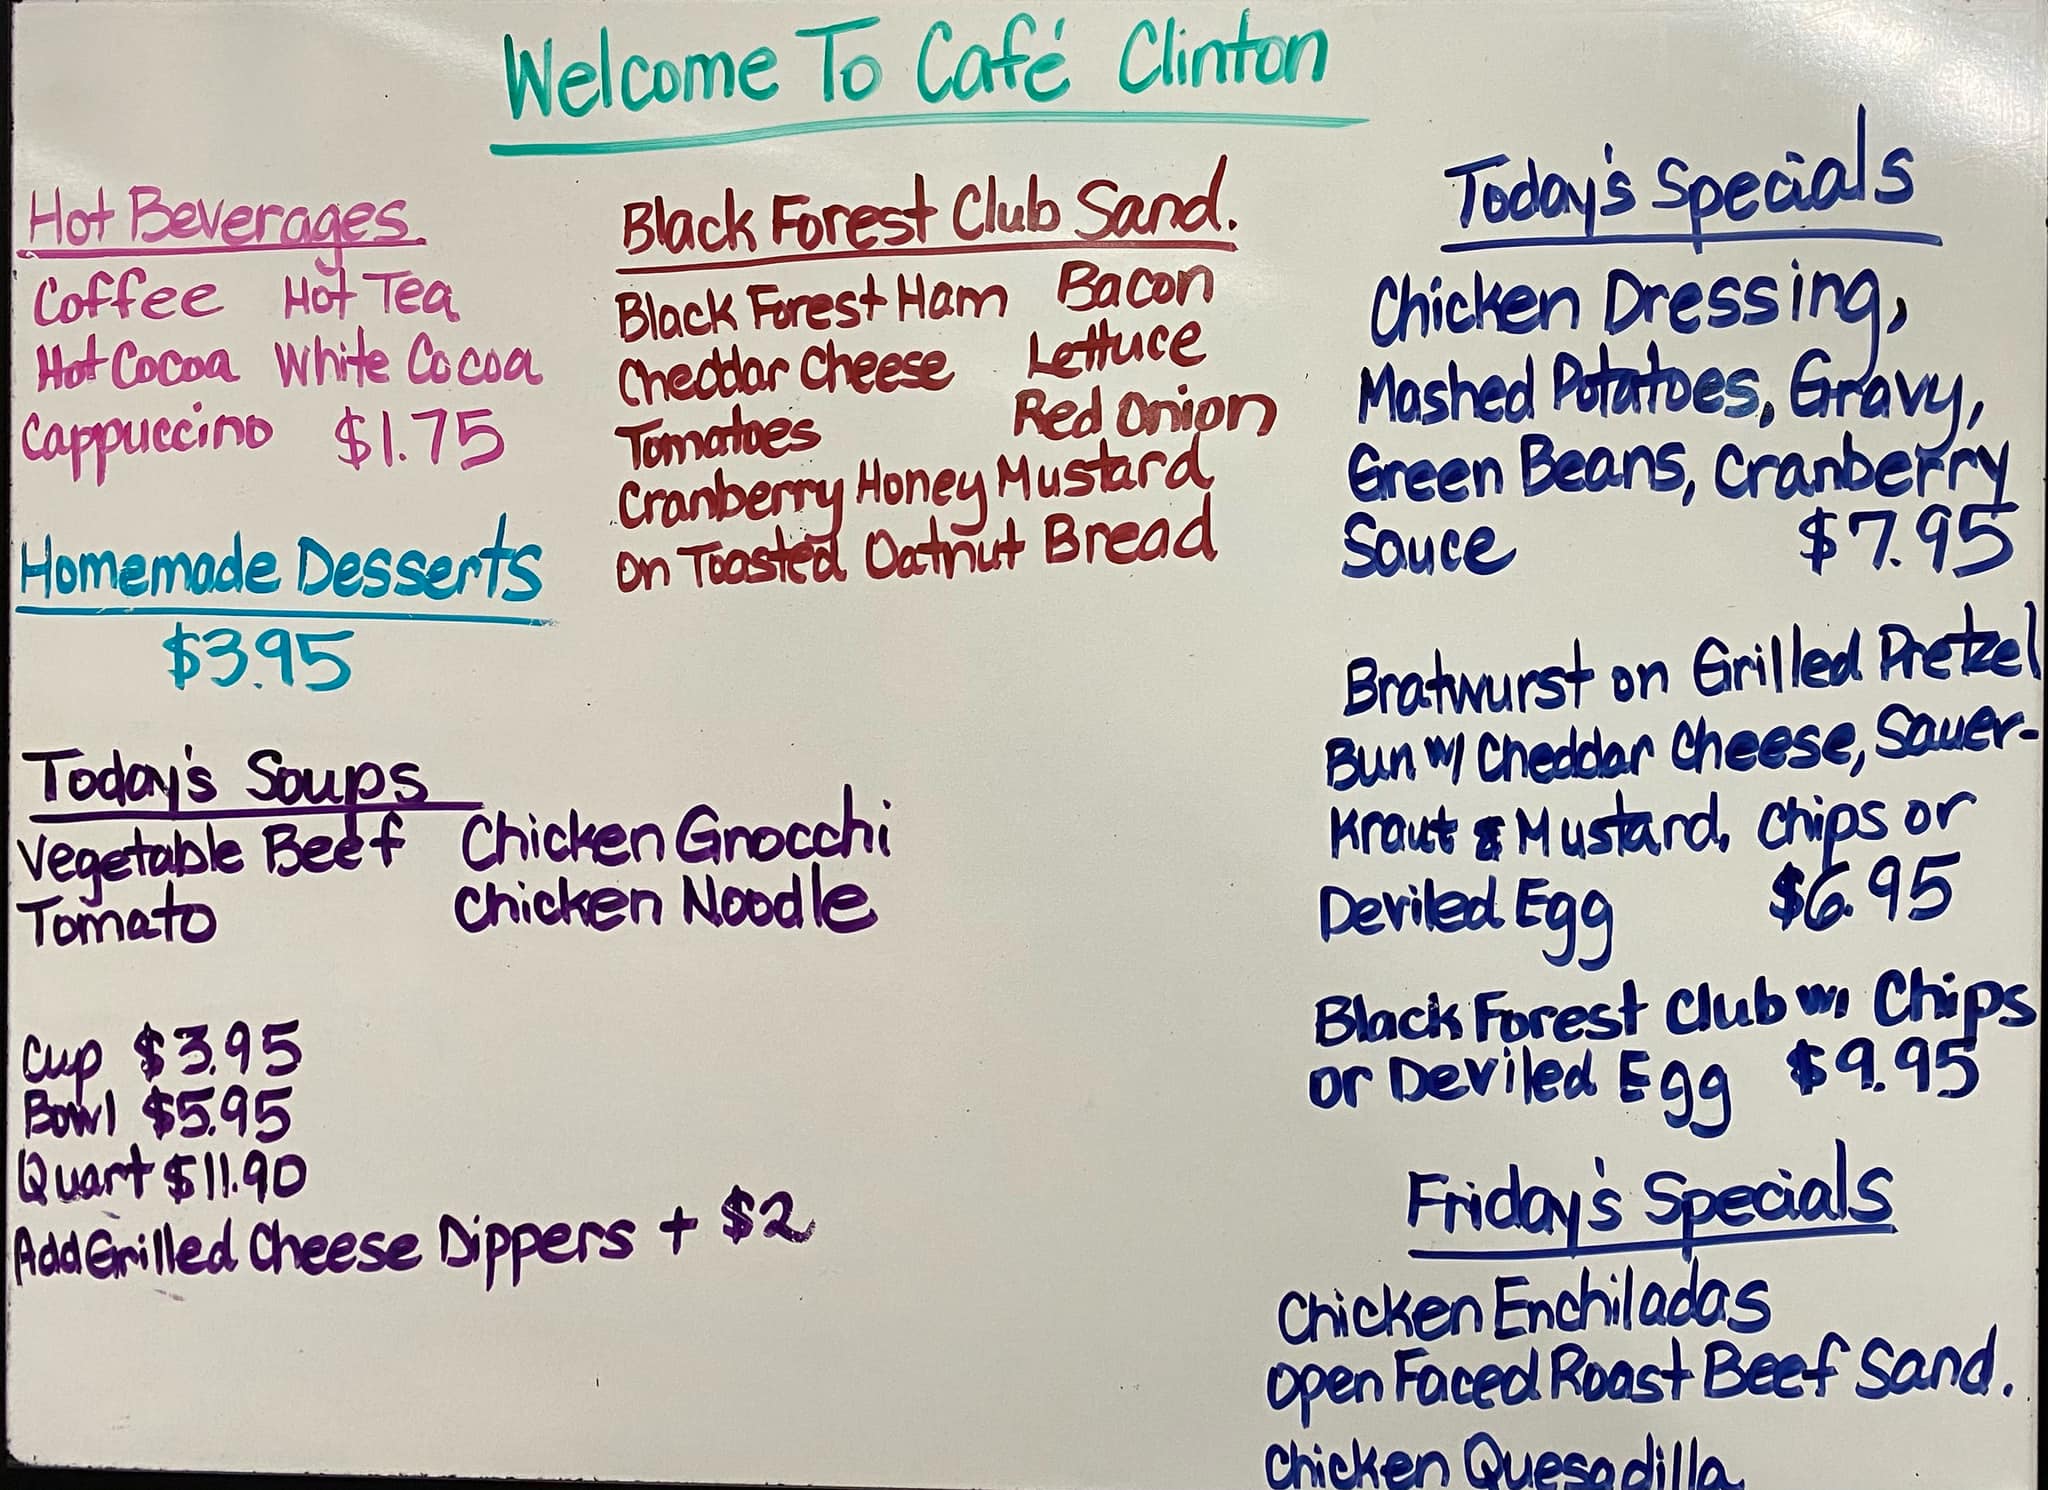 Welcome To Café Clinton
Hot Beverages
Coffee Hot Tea
Hot Cocoa White Cocoa
Cappuccino $1.75
Homemade Desserts
$3.95
Today's Soups
Vegetable Beef Chicken Gnocchi
Tomato Chicken Noodle
Cup $3.95
Bowl $5.95
Quart $11.90
Add Grilled Cheese Dippers + $2
Black Forest Club Sand.
Black Forest Ham Bacon
Cheddar Cheese Lettuce
Tomatoes Red Onion
Cranberry Honey Mustard
on Toasted Oatnut Bread
Today's Specials
Chicken Dressing,
Mashed Potatoes, Gravy,
Green Beans, Cranberry
Sauce $7.95
Bratwurst on Grilled Pretzel
Bun w/ Cheddar Cheese, Sauer-
Kraut & Mustard, Chips or
Deviled Egg $6.95
Black Forest Club w/ Chips
or Deviled Egg $9.95
Friday's Specials
Chicken Enchiladas
Open Faced Roast Beef Sand.
Chicken Quesadilla